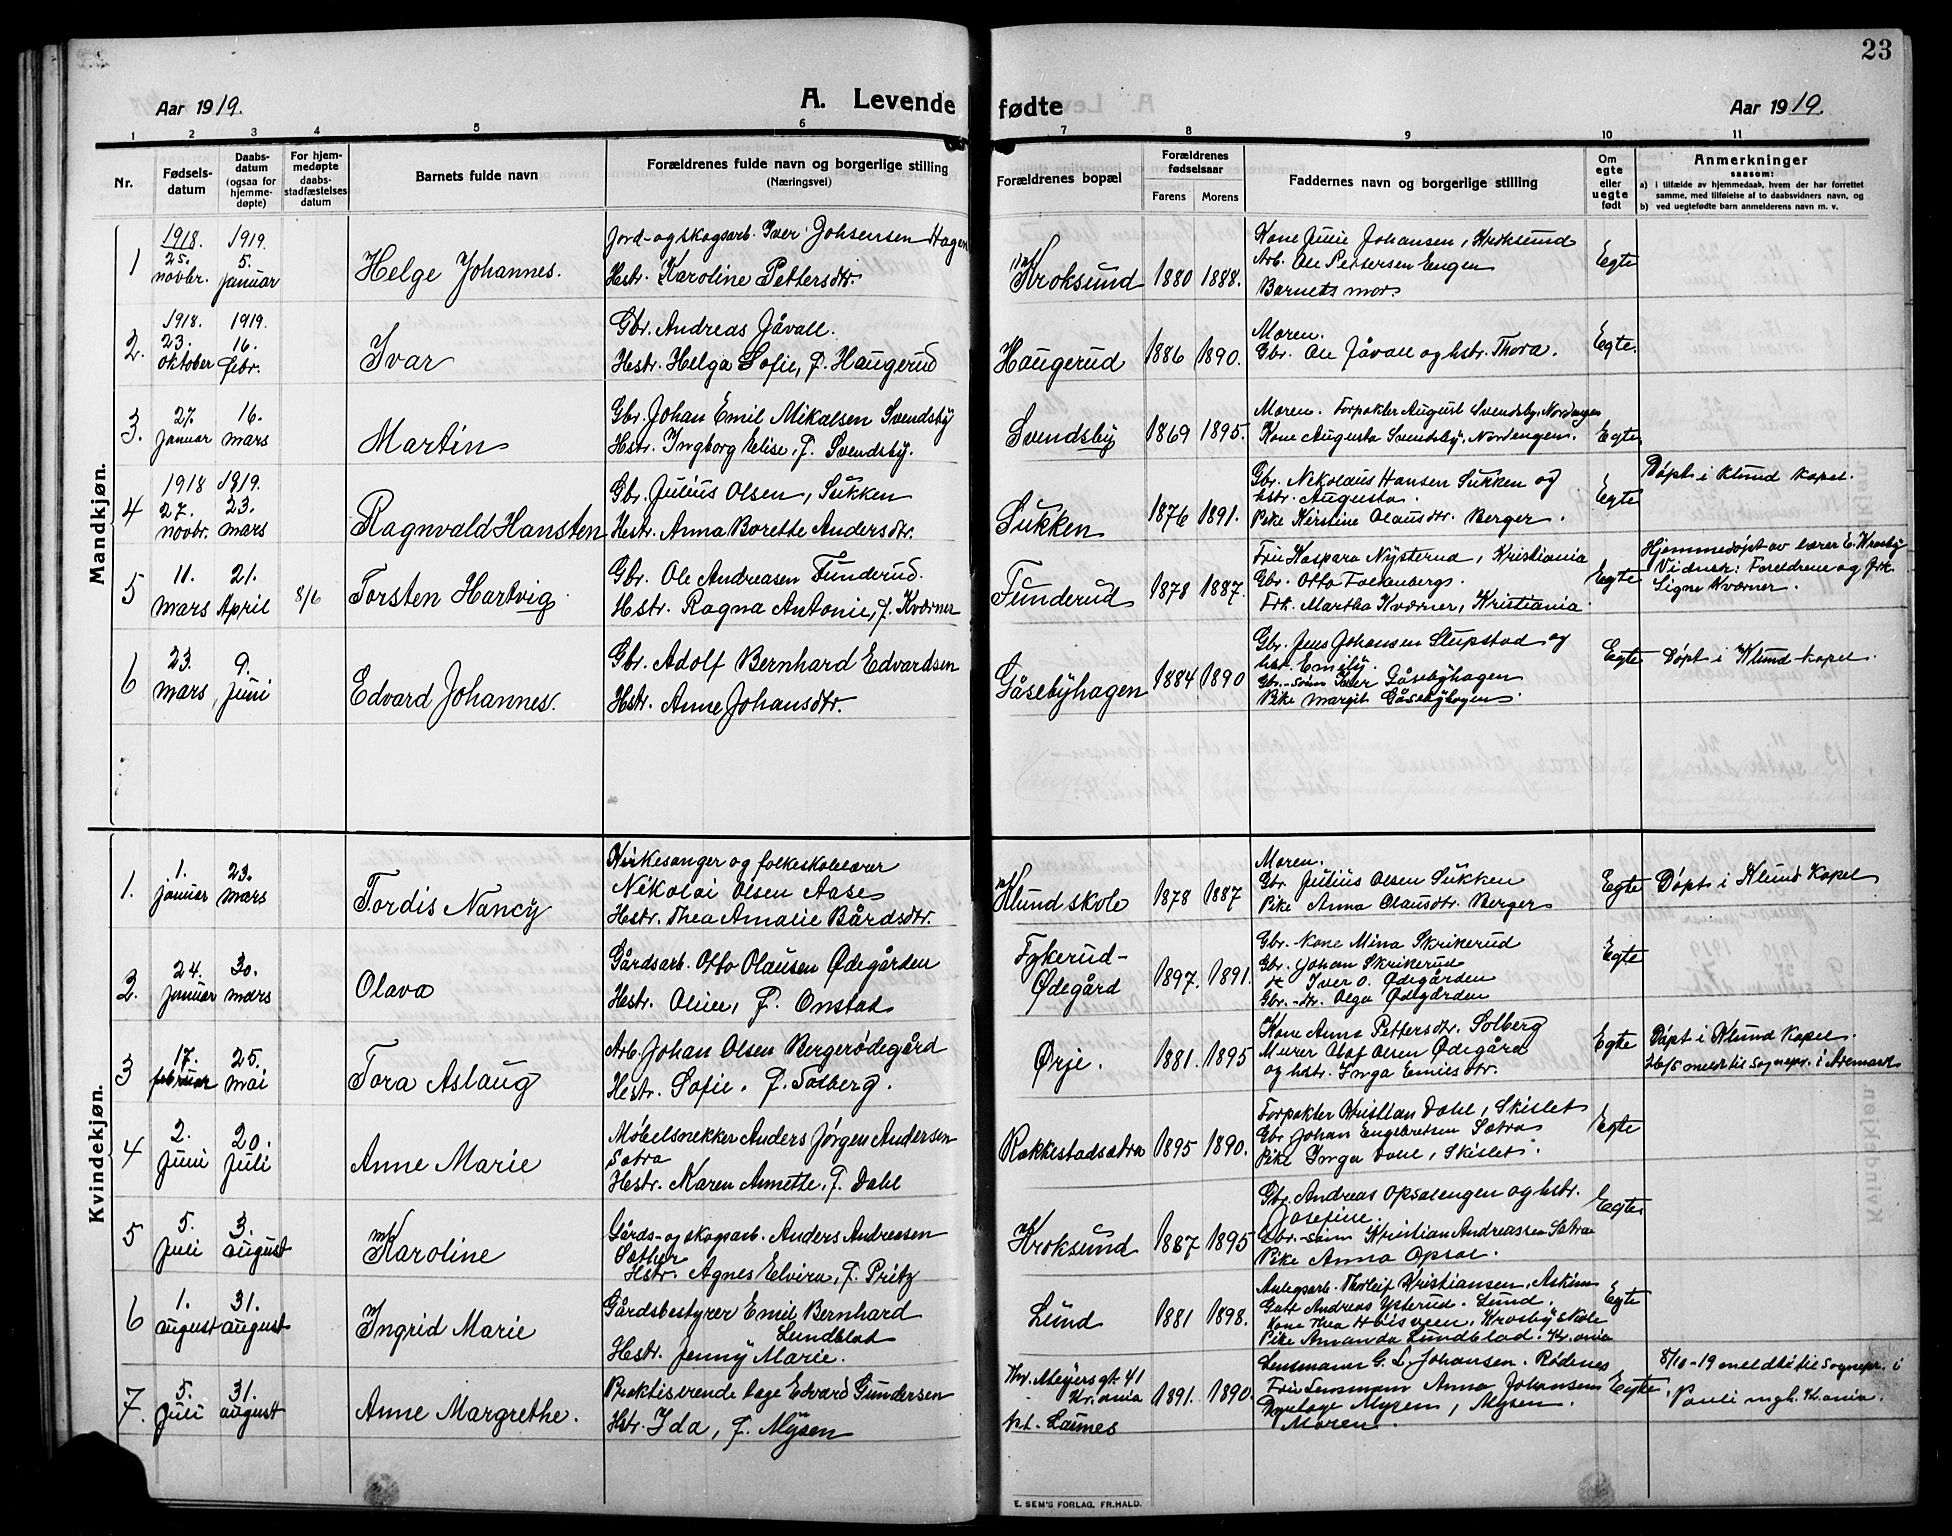 23
Aar 1919. A. Levende fødte Aar 1919.
1 2 3 4 5 6 7 8 9 10 11
Nr.
Fødsels-
datum
Daabs-
datum
(ogsaa for
hjemme-
døpte)
For hjem-
medøpte
daabs-
stadfæstelses
datum
Barnets fulde navn
Forældrenes fulde navn og borgerlige stilling
(Næringsvei)
Forældrenes bopæl
Forældrenes
fødselsaar
Farens Morens
Faddernes navn og borgerlige stilling
Om
egte
eller
uegte
født
Anmerkninger
saasom:
a) i tilfælde av hjemmedaab, hvem der har forrettet
samme, med tilføielse af to daabsvidners navn, og
b) ved uegtefødte barn anmelderens navn m. v.
Mandkjøn.
1
1918. 25. novbr.
1919. 5. januar
Helge Johannes.
Jord- og skogsarb. Iver Johsensen Hagen
Hstr. Karoline Pettersdtr.
Kroksund
1880 1888.
Kone Julie Johansen, Kroksund
Arb. Ole Pettersen Engen
Barnets mor.
Egte
2.
1918. 23. oktober
1919. 16. febr.
Ivar
Gbr. Andreas Jåvall.
Hstr. Helga Sofie, f. Haugerud
Haugerud
1886 1890.
Moren.
Gbr. Ole Jåvall og hstr. Thora.
Egte.
3.
27. januar
16. mars
Martin
Gbr. Johan Emil Mikalsen Svendsby
Hstr. Ingborg Elise, f. Svendsby.
Svendsby
1869 1895.
Moren. Forpakter August Svendsby, Nordengen
Kone Augusta Svendsby, Nordengen.
Egte
4
1918 27. novbr.
1919. 23. mars
Ragnvald Hansten
Gbr. Julius Olsen, Sukken
Hstr. Anna Borette Andersdtr.
Sukken
1876 1891.
Gbr. Nikolaus Hansen Sukken og
hstr. Augusta.
Pike Kirstine Olausdtr. Berger.
Egte
Døpt i Klund kapel.
5
11. mars
21. April
8/6
Torsten Hartvig
Gbr. Ole Andreasen Funderud.
Hstr. Ragna Antonie, f. Kværner
Funderud
1878 1887.
Fru Kaspara Nysterud, Kristiania
Gbr. Otto Falkenberg.
Frk. Martha Kværner, Kristiania.
Egte
Hjemmedøpt av lærer E. Krosby
Vidner: Foreldrene og frk.
Signe Kværner.
6
23. mars
9. juni
Edvard Johannes.
Gbr. Adolf Bernhard Edvardsen
Hstr. Anne Johansdtr.
Gåsebyhagen
1884 1890
Gbr. Jens Johansen Slupstad og
hstr. Emely.
Gbr.-sønn Iver Gåsebyhagen
Pike Margit Gåsebyhagen.
Egte
Døpt i Klund kapel.
Kvindekjøn.
1.
1. januar
23. mars
Tordis Nancy
Kirkesanger og folkeskolelærer
Nikolai Olsen Aase
Hstr. Thea Amalie Bårdsdtr.
Klund skole
1878 1887
Moren.
Gbr. Julius Olsen Sukken
Pike Anna Olausdtr. Berger
Egte
Døpt i Klund Kapel
2.
24. januar
30. mars
Olava
Gårdsarb. Otto Olausen Ødegården
Hstr. Oline, f. Onstad
Fykerud-
Ødegård
1897. 1891.
Gbr. Kone Mina Skrikerud
Gbr. Johan Skrikerud
Iver O. Ødegården
Gbr.-dtr. Olga Ødegården
Egte
3
17. februar
25. mai
Tora Aslaug
Arb. Johan Olsen Bergerødegård
Hstr. Sofie. f. Solberg.
Ørje.
1881. 1895
Kone Anna Pettersdtr. Solberg
Murer Olaf Olsen Ødegård
og hstr. Inga Emilsdtr.
Egte
Døpt i Klund Kapel.
26/5 meldt til Sognepr. i Aremark
4
2. juni
20. juli
Anne Marie
Møbelsnekker Anders Jørgen Andersen
Sætra
Hstr. Karen Annette, f. Dahl
Rakkestadsætra
1895 1890.
Forpakter Kristian Dahl, Skislet
Gbr. Johan Engebretsen Sætra
Pike Inga Dahl, Skislet.
Egte
5
5. juli
3. august
Karoline
Gårds- og skogsarb. Anders Andreasen
Sæther
Hstr. Agnes Elvira, f. Pritz
Kroksund
1887 1895
Gbr. Andreas Opsalengen og hstr.
Josefine.
Gbr.-sønn Kristian Andreassen Sætra
Pike Anna Opsal.
Egte
6
1. august
31. august
Ingrid Marie
Gårdsbestyrer Emil Bernhard
Lundblad
Hstr. Jenny Marie.
Lund
1881 1898.
Anlegsarb. Thorleif Kristiansen, Askim
Gutt Andreas Ysterud. Lund.
Kone Thea Høisveen, Krosby skole
Pike Amanda Lundblad. Kr.ania
Egte
7.
5. juli
31. august
Anne Margrethe.
Praktiserende læge Edvard Gundersen
Hstr. Ida, f. Mysen
Thv. Meyers gt. 41
Kr.ania
pt. Laames
1891. 1890.
Lensmann G. L. Johansen. Rødenes
Fru Lensmann Anna Johansen
Dyrlæge Mysen, Mysen.
Moren.
Egte
8/10-19 meldt til Sognepr. i
Pauli mgh. Kr.ania.
E. SEM'S FORLAG, FR.HALD.